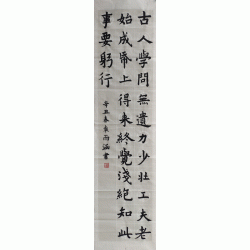 古人學問無遺力少壯工夫老
始成帋上得来終覺淺絕知此
事要躬行
辛丑春袁雨涵書